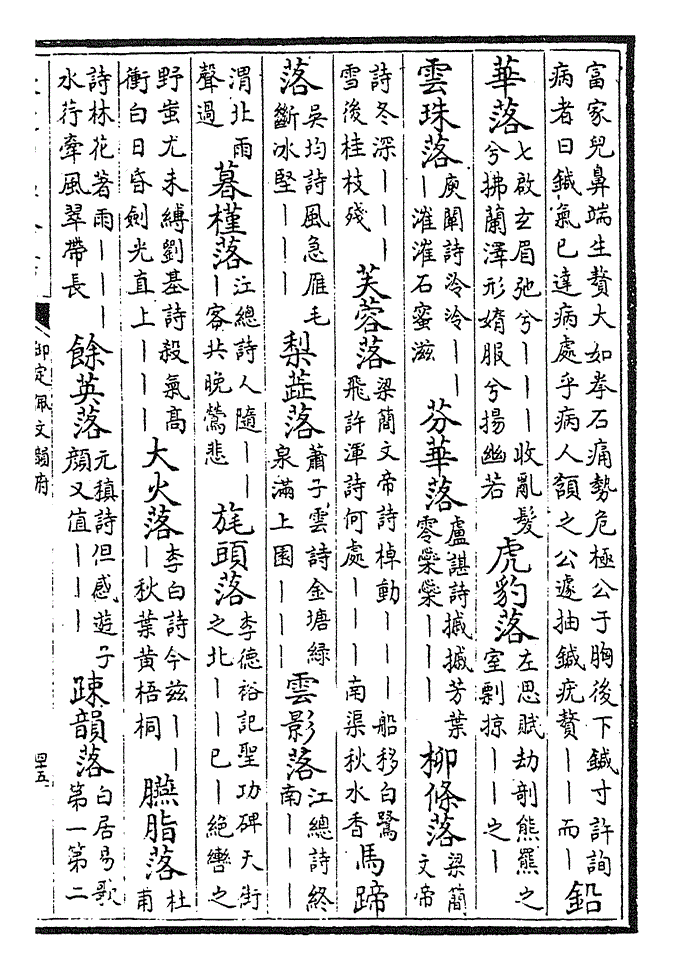 富家兒鼻端生贅大如拳石痛勢危極公于胸後下鍼寸許詢
病者曰鍼氣已達病處乎病人頷之公遽抽鍼疣贅｜｜而｜
鉛
華落
七啟玄眉弛兮｜｜｜收亂髮
兮拂蘭澤形媠服兮揚幽若
虎豹落
左思賦劫剞熊羆之
室剽掠｜｜之｜
雲珠落
庾闡詩泠泠｜｜
｜漼漼石蜜滋
芬華落
盧諶詩摵摵芳葉
零橤橤｜｜｜
柳條落
梁簡
文帝
詩冬深｜｜｜
雪後桂枝殘
芙蓉落
梁簡文帝詩棹動｜｜｜船移白鷺
飛許渾詩何處｜｜｜南渠秋水香
馬蹄
落
吳均詩風急雁毛
斷冰堅｜｜｜
梨蕋落
蕭子雲詩金塘緑
泉滿上囿｜｜｜
雲影落
江總詩終
南｜｜｜
渭北雨
聲過
暮槿落
江總詩人隨｜｜
｜客共晚鶯悲
旄頭落
李德裕記聖功碑天街
之北｜｜已｜絶轡之
野蚩尤未縛劉基詩殺氣高
衝白日昏劍光直上｜｜｜
大火落
李白詩今兹｜｜
｜秋葉黄梧桐
臙脂落
杜
甫
詩林花著雨｜｜｜
水荇牽風翠帶長
餘英落
元稹詩但感遊子
顔又值｜｜｜
疎韻落
白居易歌
第一第二
御定佩文韻府
四五